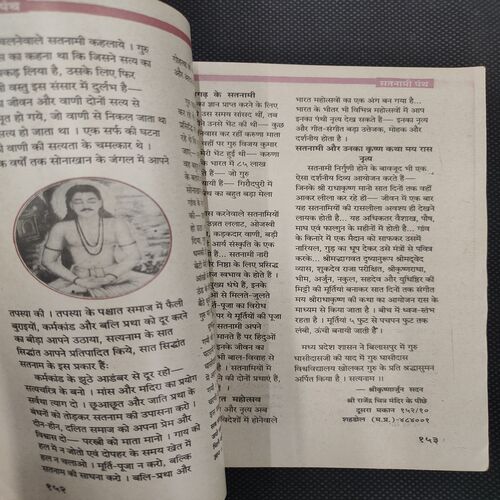 पंथ
चलनेवाले सतनामी कहलाये । गुरु
स का कहना था कि जिसने सत्य का
पकड़ लिया है, उसके लिए फिर
भी वस्तु इस संसार में दुर्लभ है ।
का जीवन और वाणी दोनों सत्य से
भूत हो गये, जो वाणी से निकल जाता था
सत्य हो जाता था । एक सर्फ की घटना
की वाणी की सत्यता के चमत्कार थे ।
क वर्षों तक सोनाखान के जंगल में आपने
तपस्या की । तपस्या के पश्चात समाज में फैली
बुराइयों, कर्मकांड और बलि प्रथा को दूर करने
का बीड़ा आपने उठाया, सत्यनाम के सात
सिद्धांत आपने प्रतिपादित किये, सात सिद्धांत
सतनाम के इस प्रकार हैं:
कर्मकांड के झूठे आडंबर से दूर रहो—
सत्यचरित्र के बनो । मांस और मदिरा का प्रयोग
सर्वथा त्याग दो । छूआछूत और जाति प्रथा के
बंधनों को तोड़कर सतनाम की उपासना करो ।
दीन-हीन, दलित समाज को अपना प्रेम और
विश्वास दो— परस्त्री को माता मानो । गाय को
हल में न जोतो एवं दोपहर के समय खेत में
हल न चलाओ । मूर्ति-पूजा न करो, बल्कि
सतनाम की साधना करो । बलि-प्रथा और
१५२
सतनामी पंथ
गढ़ के सतनामी
का ज्ञान प्राप्त करने के लिए
उस समय सांसद थीं, तब
उनसे भेंट की थी— कुछ
वास कर रहीं करुणा माता
वहाँ पर गुरु विजय कुमार
भेंट हुई थी— करुणा
भारत में ८५ लाख
हैं— जो गुरु
यायी हैं— गिरौदपुरी में
ा का बहुत बड़ा मेला
स करनेवाले सतनामियों
उन्नत ललाट, ओजस्वी
कड़कदार वाणी, बड़ी
आर्य संस्कृति के एक
हैं... सतनामी नारी
र निष्ठा के लिए प्रसिद्ध
ज स्वभाव के होते हैं ।
मुख्य धंधे हैं, इनके
ओं से मिलते-जुलते
र्ति-पूजा का विरोध
पर ये मूर्तियों की पूजा
सतनामी अपने
मानते हैं पर हिंदुओं
इनके जीवन का
भी बाल-विवाह से
ने की दोनों प्रथाएं हैं,
महोत्सव
और नृत्य अब
विदेशों में होनेवाले
भारत महोत्सवों का एक अंग बन गया है...
भारत के भीतर भी विभिन्न महोत्सवों में आप
इनका पंथी नृत्य देख सकते हैं— इनका नृत्य
और गीत-संगीत बड़ा उत्तेजक, मोहक और
दर्शनीय होता है ।
सतनामी और उनका कृष्ण कथा मय रास
नृत्य
सतनामी निर्गुणी होने के बावजूद भी एक
ऐसा दर्शनीय दिव्य आयोजन करते हैं—
जिनके श्री राधाकृष्ण मानो सात दिनों तक वहीं
आकर लीला कर रहे हों— जीवन में एक बार
यह सतनामियों की रासलीला अवश्य ही देखने
लायक होती है... यह अधिकतर वैशाख, पौष,
माघ एवं फाल्गुन के महीनों में होती है... गांव
के किनारे में एक मैदान को साफकर उसमें
नारियल, गुड़ का धूप देकर उसे मंत्रों से पवित्र
करके... श्रीमद्भागवत दृष्यानुरूप श्रीमद्वेद
व्यास, शुकदेव राजा परीक्षित, श्रीकृष्णराधा,
भीम, अर्जुन, नकुल, सहदेव और युधिष्ठिर की
मिट्टी की मूर्तियां बनाकर सात दिनों तक संगीत
मय श्रीराधाकृष्ण की कथा का आयोजन रास के
माध्यम से किया जाता है । बीच में ध्वज-स्तंभ
रहता है । मूर्तियां ५ फुट से पचपन फुट तक
लंबी, ऊंची बनायी जाती हैं ।
मध्य प्रदेश शासन ने बिलासपुर में गुरु
घासीदासजी की याद में गुरु घासीदास
विश्वविद्यालय खोलकर गुरु के प्रति श्रद्धासुमन
अर्पित किया है । सत्यनाम ॥
— श्रीकृष्णार्जुन सदन
श्री राजेंद्र चित्र मंदिर के पीछे
दूसरा मकान १५२/१०
शहडोल (म.प्र.)-४८४००१
१५३